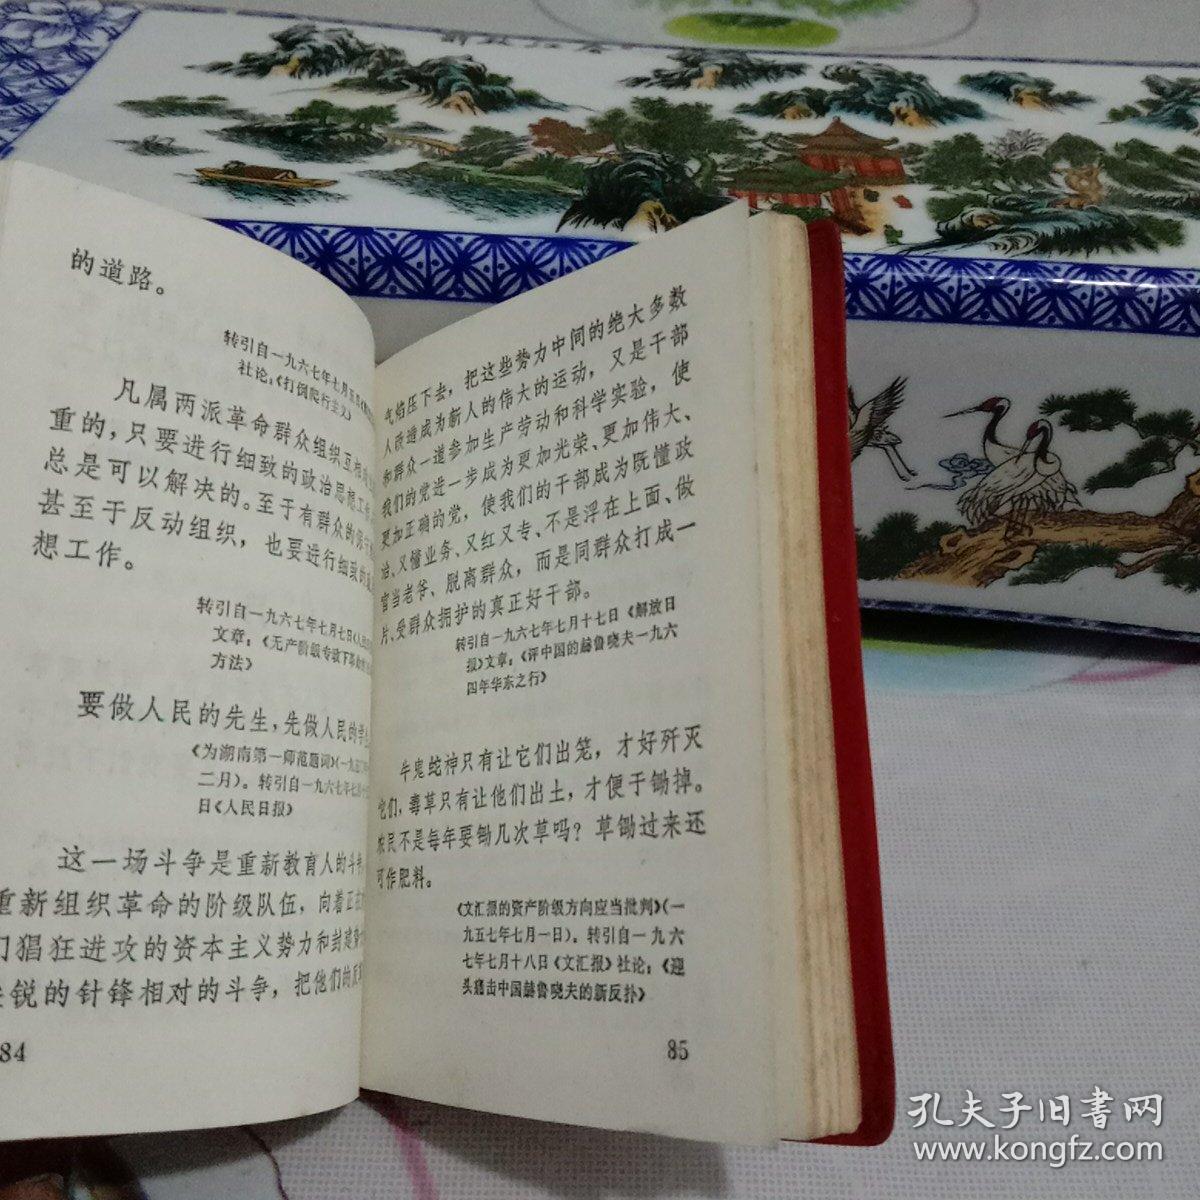 的道路。
转引自一九六七年七月
社论：《打倒爬行主义》
凡属两派革命群众组织互相
重的，只要进行细致的政治思想工
总是可以解决的。至于有群众的保守
甚至于反动组织，也要进行细致的
想工作。
转引自一九六七年七月七日《人
文章：《无产阶级专政下革
方法》
要做人民的先生，先做人民的学生
《为湖南第一师范题词》（一九五
二月）。转引自一九六七年七月
日《人民日报》
这一场斗争是重新教育人的斗争
重新组织革命的阶级队伍，向着正在
们猖狂进攻的资本主义势力和封建
锐的针锋相对的斗争，把他们的反
84
气焰压下去，把这些势力中间的绝大多数
人改造成为新人的伟大的运动，又是干部
和群众一道参加生产劳动和科学实验，使
我们的党进一步成为更加光荣、更加伟大、
更加正确的党，使我们的干部成为既懂政
治、又懂业务、又红又专、不是浮在上面、做
官当老爷、脱离群众，而是同群众打成一
片、受群众拥护的真正好干部。
转引自一九六七年七月十七日《解放日
报》文章：《评中国的赫鲁晓夫一九六
四年华东之行》
牛鬼蛇神只有让它们出笼，才好歼灭
它们，毒草只有让他们出土，才便于锄掉。
农民不是每年要锄几次草吗？草锄过来还
可作肥料。
《文汇报的资产阶级方向应当批判》（一
九五七年七月一日）。转引自一九六
七年七月十八日《文汇报》社论：《迎
头痛击中国赫鲁晓夫的新反扑》
85
孔夫子旧書网
www.kongfz.com